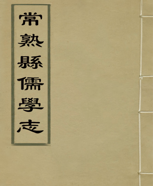 常熟縣儒學志